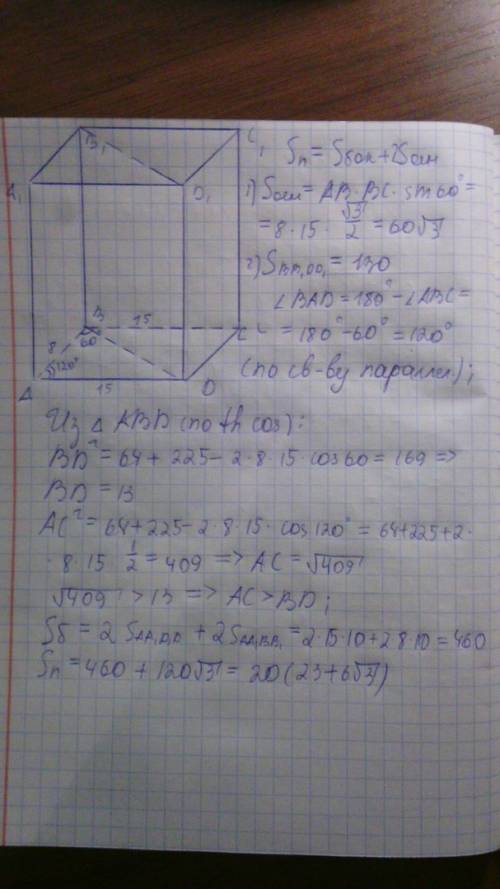 B₁
C₁
A₁
D₁
B
15
60°
C
8
120°
15
A
D
Sп = Sбок + 2Sосн
1) Sосн = AB · BC · sin 60° =
= 8 · 15 · √3/2 = 60√3
2) S_BB₁DD₁ = 130
∠BAD = 180° - ∠ABC =
= 180° - 60° = 120°
(по св-ву параллел);
Из △ ABD (по th cos):
BD² = 64 + 225 - 2 · 8 · 15 · cos 60 = 169 =>
BD = 13
AC² = 64 + 225 - 2 · 8 · 15 · cos 120° = 64 + 225 + 2 ·
· 8 · 15 · 1/2 = 409 => AC = √409
√409 > 13 => AC > BD;
Sб = 2 S_AA₁D₁D + 2 S_AA₁BB₁ = 2 · 15 · 10 + 2 8 · 10 = 460
Sп = 460 + 120√3 = 20 (23 + 6√3)